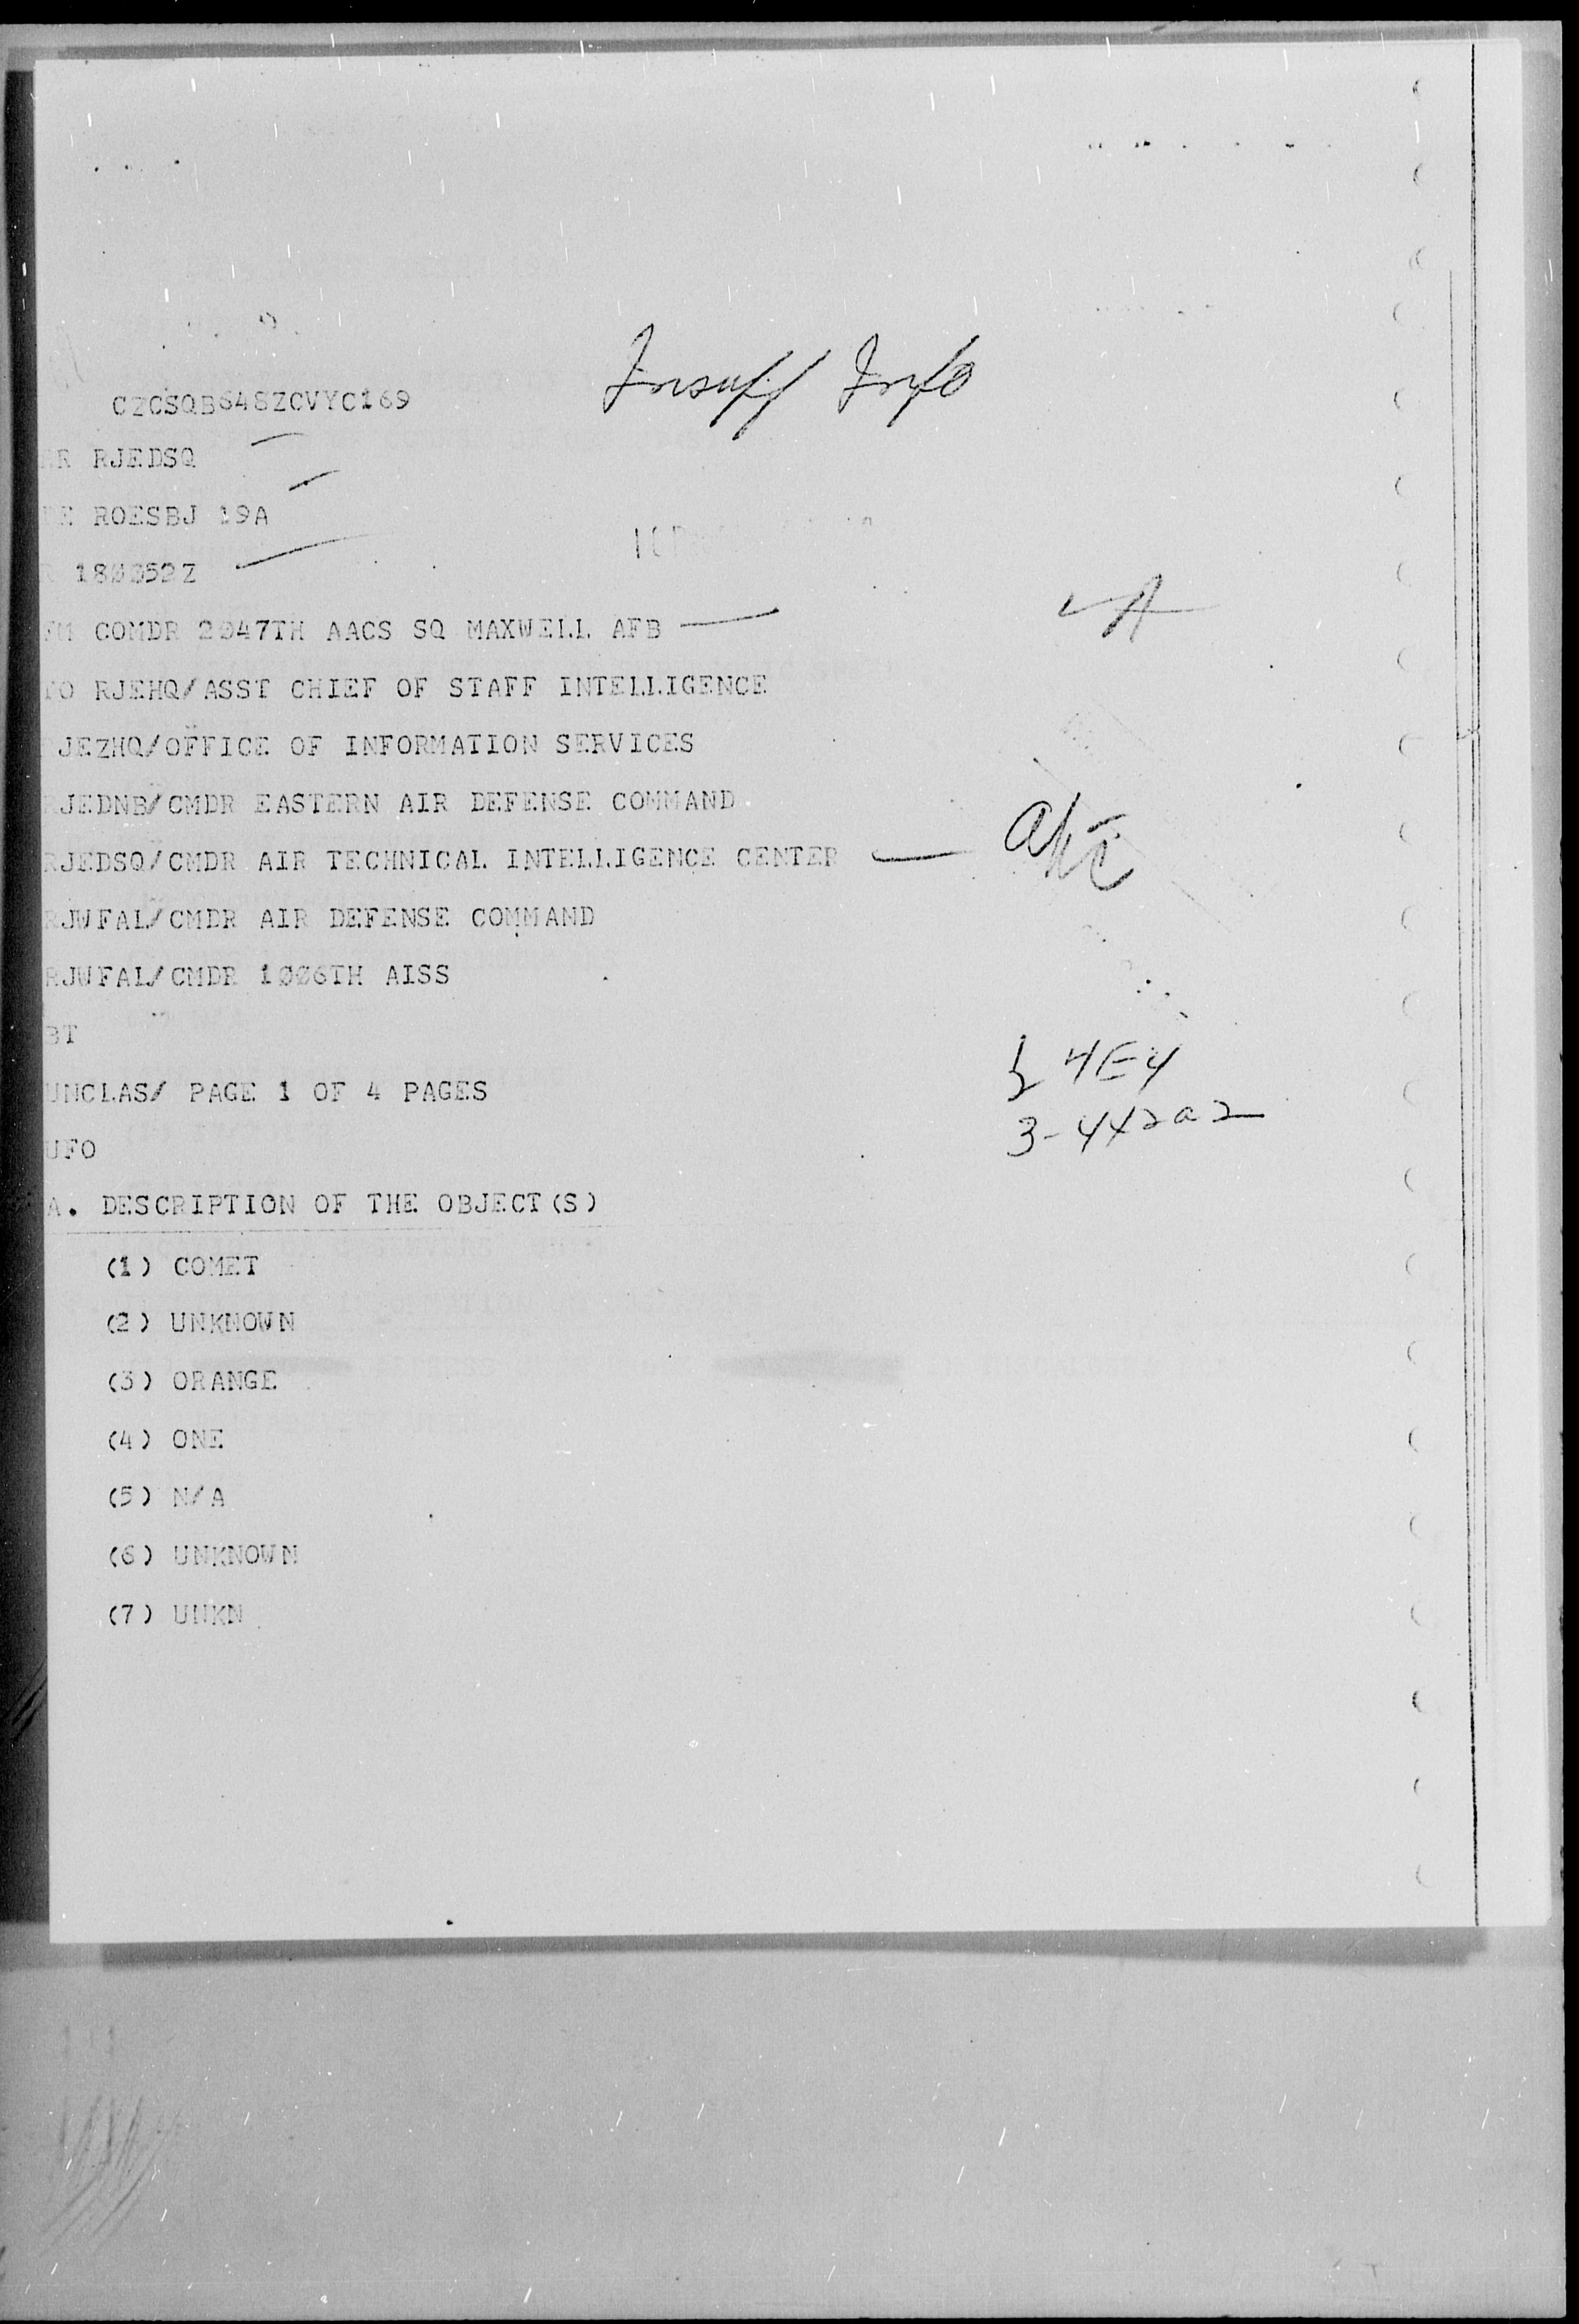 Insuff Info
CZCSQB648ZCVYC169
RR RJEDSQ
DE ROESBJ 19A
R 180052Z
FM COMDR 2047TH AACS SQ MAXWELL AFB
A
TO RJEHQ/ASST CHIEF OF STAFF INTELLIGENCE
JEZHQ/OFFICE OF INFORMATION SERVICES
RJEDNB/CMDR EASTERN AIR DEFENSE COMMAND
RJEDSQ/CMDR AIR TECHNICAL INTELLIGENCE CENTER
RJWFAL/CMDR AIR DEFENSE COMMAND
RJWFAL/CMDR 1006TH AISS
BT
4E4
UNCLAS/ PAGE 1 OF 4 PAGES
3-4X2a2
UFO
A. DESCRIPTION OF THE OBJECT(S)
(1) COMET
(2) UNKNOWN
(3) ORANGE
(4) ONE
(5) N/A
(6) UNKNOWN
(7) UNKN